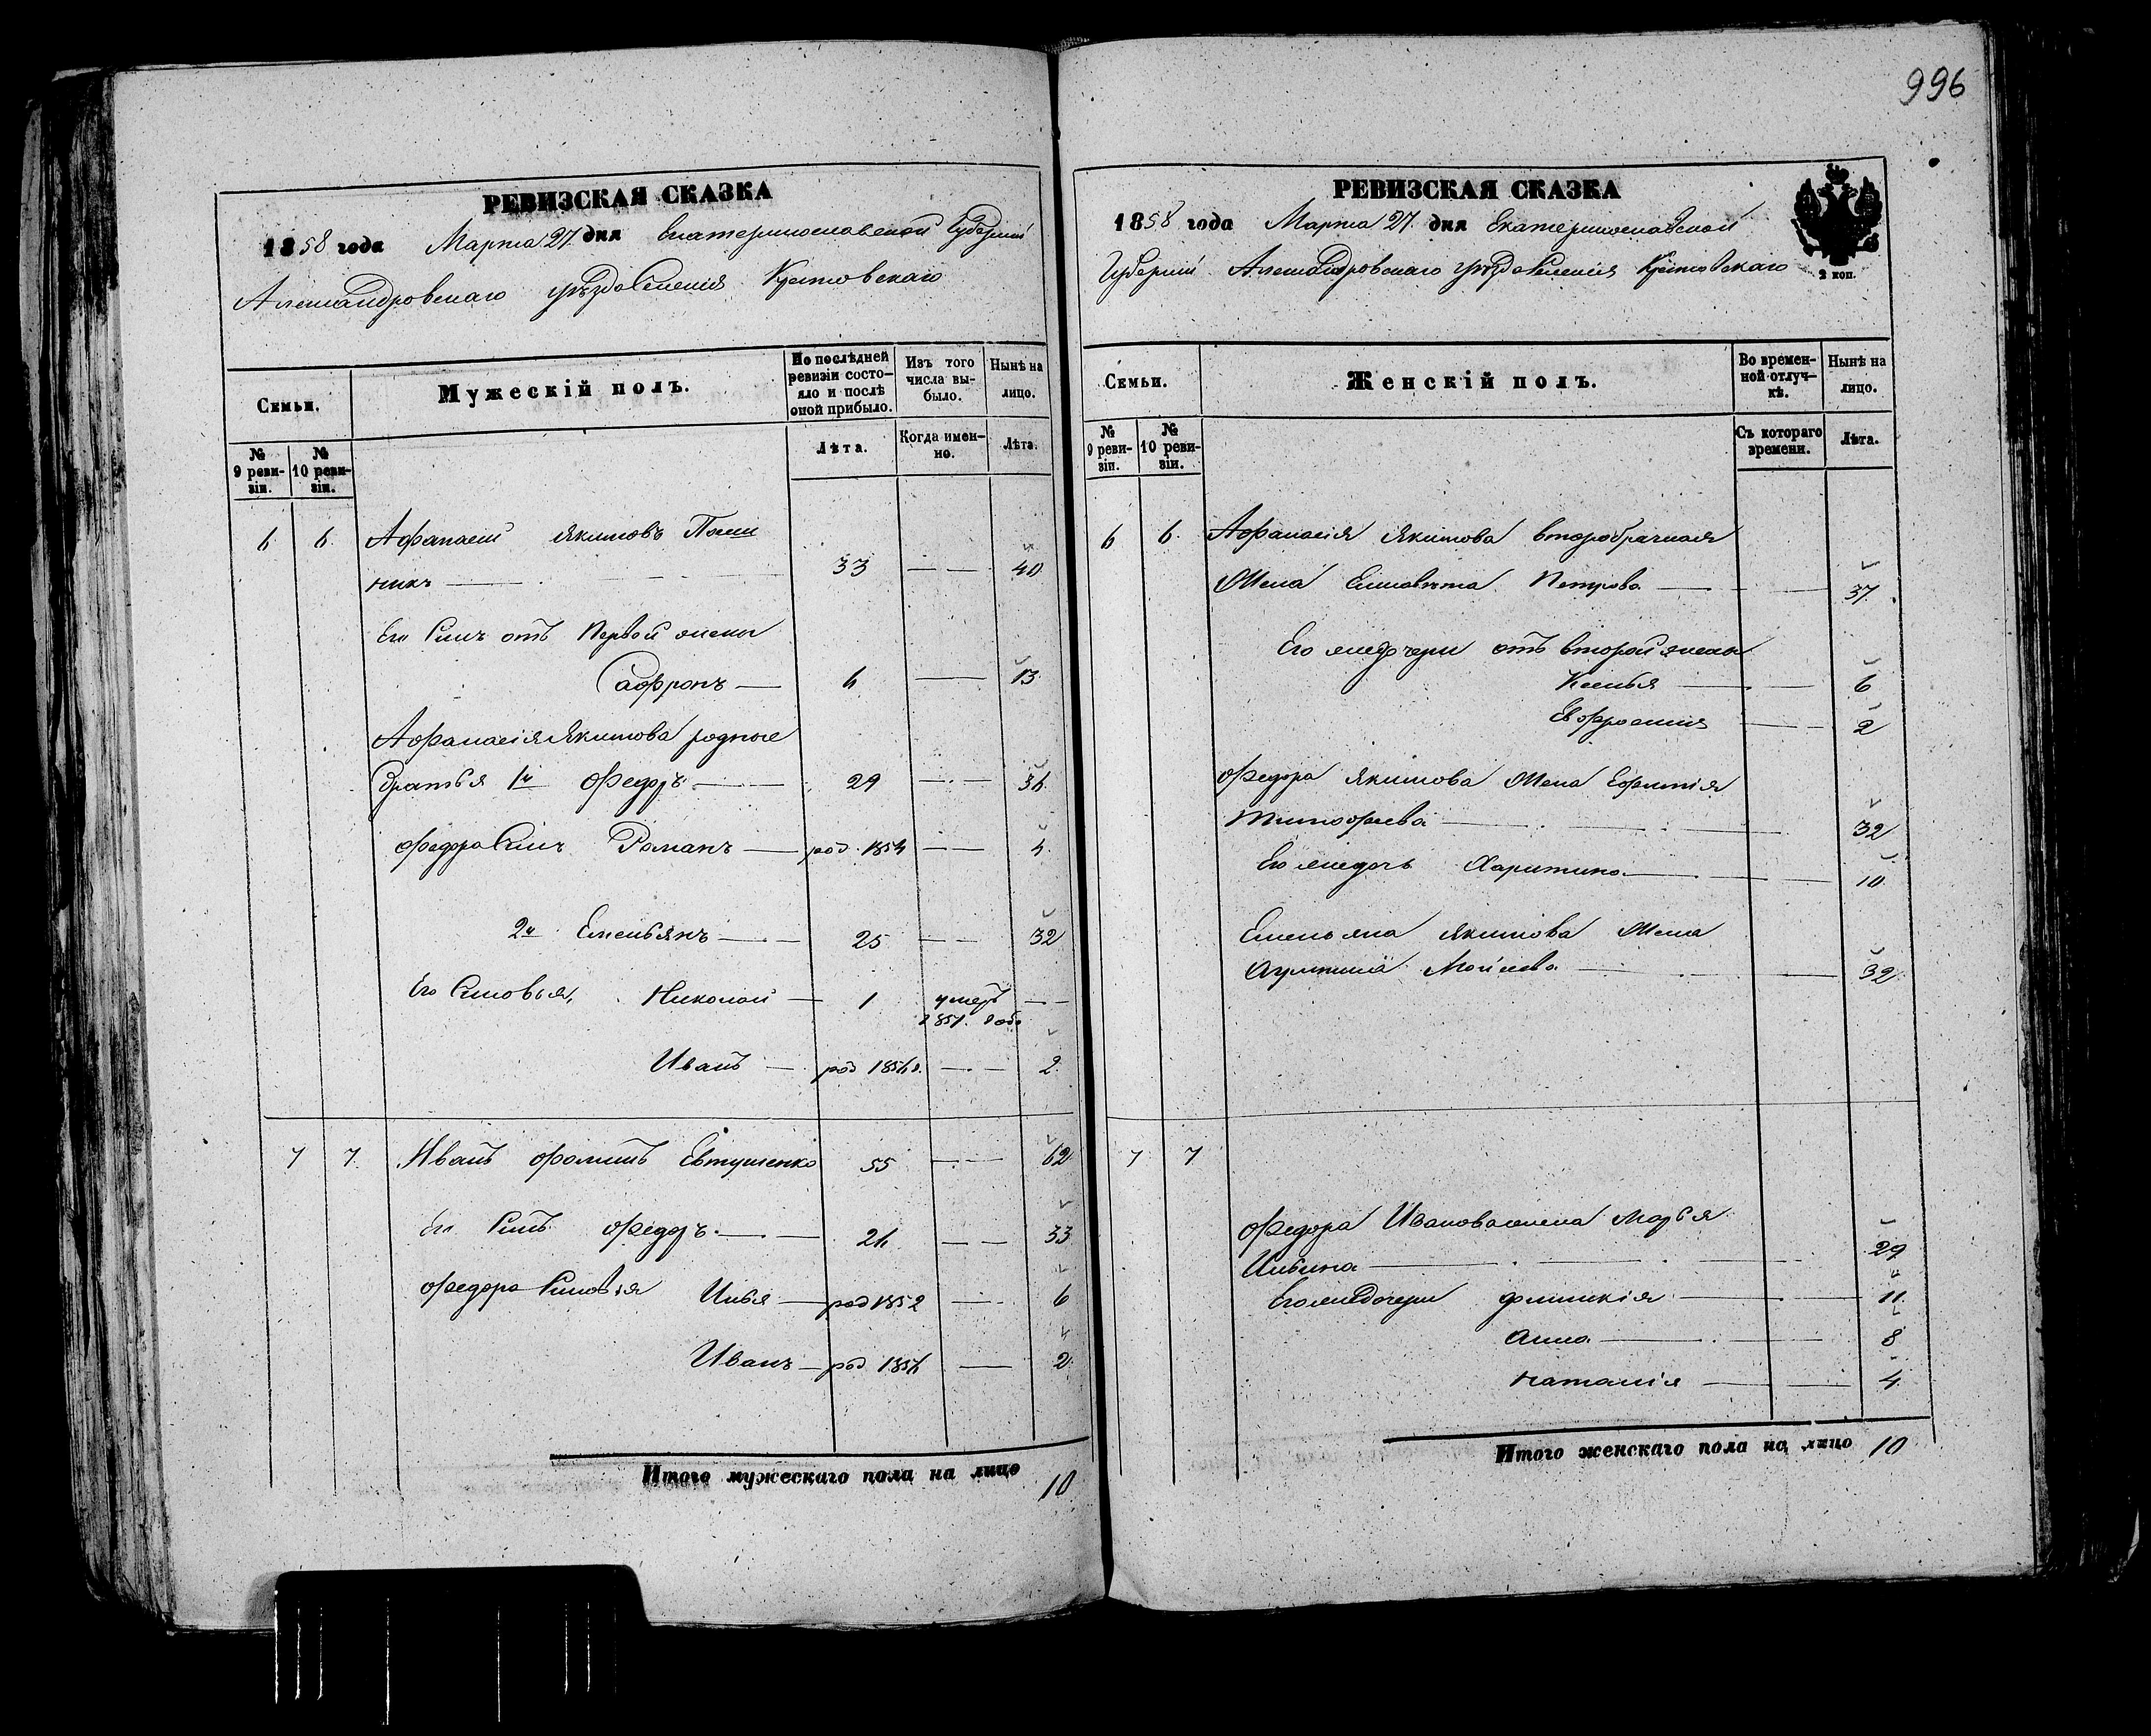 996
РЕВИЗСКАЯ СКАЗКА
1858 года Марта 27 дня Екатеринославской Губерніи
Александровскаго уѣзда Селенія
Семьи.
Мужескій полъ.
По послѣдней ревизіи состояло и послѣ оной прибыло.
Изъ того числа выбыло.
Нынѣ на лицо.
№ 9 ревизіи.
№ 10 ревизіи.
Лѣта.
Когда именно.
Лѣта.
6 6. Афанасій Якимовъ
никъ 33 40
Его Сынъ отъ Первой жены
Сафронъ 6 13
Афанасія Якимова родные
братья 1й Федоръ 29 36
Федора Сынъ Роман‌ъ род. 1854 4
2й Емельянъ 25 32
Его Сыновья, Николай 1 умеръ
1851. года
Иванъ род 1856 г. 2
7 7. Иванъ Фоминъ Евтушенко 55 62
Его Сынъ Федоръ 26 33
Федора Сыновья Илья род 1852 6
Иванъ род 1856 2
Итого мужескаго пола на лицо 10
РЕВИЗСКАЯ СКАЗКА
1858 года Марта 27 дня Екатеринославской
Губерніи Александровскаго уѣзда Селенія
2 коп.
Семьи.
Женскій полъ.
Во временной отлучкѣ.
Нынѣ на лицо.
№ 9 ревизіи.
№ 10 ревизіи.
Съ котораго времени.
Лѣта.
6 6. Афанасія Якимова второбрачная
Жена Елисавета Петрова 37
Его же дочери отъ второй жены
Ксенья 6
Евфросинія 2
Федора Якимова Жена Ефимія
Тимофеева 32
Его же дочь Харитина 10
Емельяна Якимова Жена
Моисеева 32
7 7
Федора Иванова жена Марья
Ильина 29
Его же дочери 11
Анна 8
Наталія 4
Итого женскаго пола на лицо 10